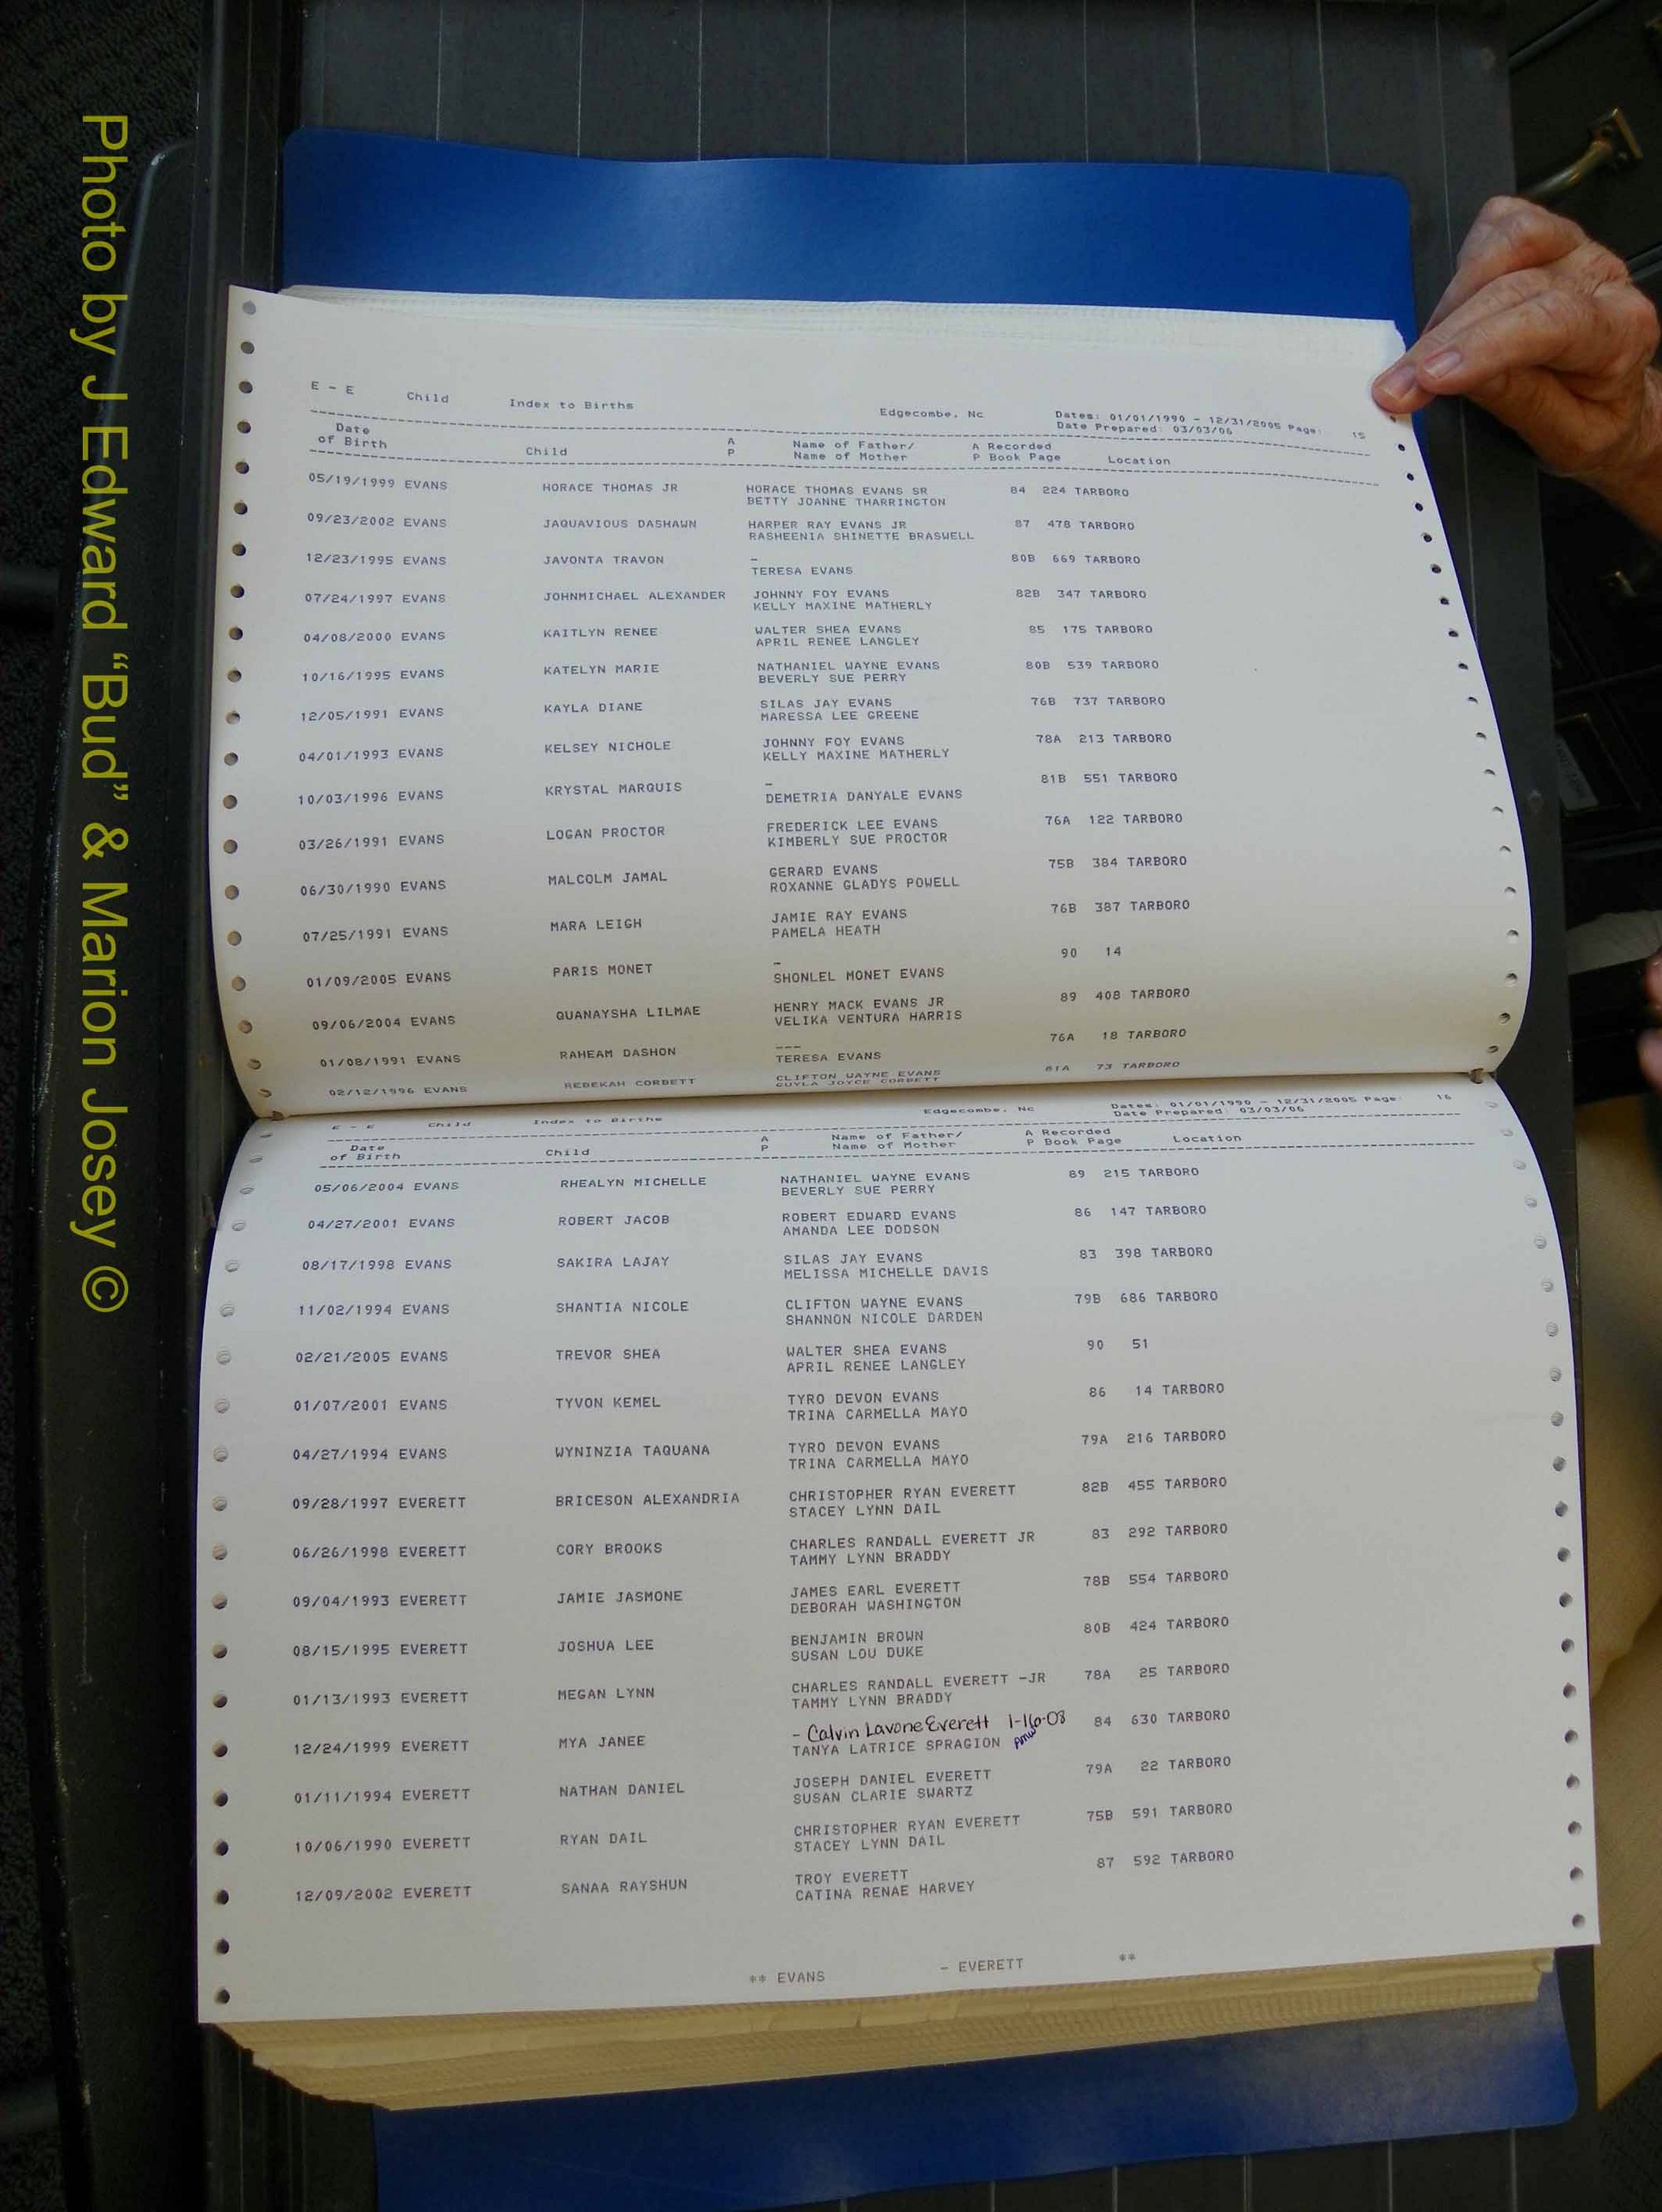 E - E Child Index to Births Edgecombe, Nc Dates: 01/01/1990 - 12/31/2005 Page: 15
Date Prepared: 03/03/06
Date of Birth Child A P Name of Father/ Name of Mother A P Recorded Book Page Location
05/19/1999 EVANS HORACE THOMAS JR HORACE THOMAS EVANS SR 84 224 TARBORO
BETTY JOANNE THARRINGTON
09/23/2002 EVANS JAQUAVIOUS DASHAWN HARPER RAY EVANS JR 87 478 TARBORO
RASHEENIA SHINETTE BRASWELL
12/23/1995 EVANS JAVONTA TRAVON - 80B 669 TARBORO
TERESA EVANS
07/24/1997 EVANS JOHNMICHAEL ALEXANDER JOHNNY FOY EVANS 82B 347 TARBORO
KELLY MAXINE MATHERLY
04/08/2000 EVANS KAITLYN RENEE WALTER SHEA EVANS 85 175 TARBORO
APRIL RENEE LANGLEY
10/16/1995 EVANS KATELYN MARIE NATHANIEL WAYNE EVANS 80B 539 TARBORO
BEVERLY SUE PERRY
12/05/1991 EVANS KAYLA DIANE SILAS JAY EVANS 76B 737 TARBORO
MARESSA LEE GREENE
04/01/1993 EVANS KELSEY NICHOLE JOHNNY FOY EVANS 78A 213 TARBORO
KELLY MAXINE MATHERLY
10/03/1996 EVANS KRYSTAL MARQUIS - 81B 551 TARBORO
DEMETRIA DANYALE EVANS
03/26/1991 EVANS LOGAN PROCTOR FREDERICK LEE EVANS 76A 122 TARBORO
KIMBERLY SUE PROCTOR
06/30/1990 EVANS MALCOLM JAMAL GERARD EVANS 75B 384 TARBORO
ROXANNE GLADYS POWELL
07/25/1991 EVANS MARA LEIGH JAMIE RAY EVANS 76B 387 TARBORO
PAMELA HEATH
01/09/2005 EVANS PARIS MONET - 90 14
SHONLEL MONET EVANS
09/06/2004 EVANS QUANAYSHA LILMAE HENRY MACK EVANS JR 89 408 TARBORO
VELIKA VENTURA HARRIS
01/08/1991 EVANS RAHEAM DASHON --- 76A 18 TARBORO
TERESA EVANS
02/12/1996 EVANS REBEKAH CORBETT CLIFTON WAYNE EVANS 81A 73 TARBORO
GUYLA JOYCE CORBETT
E - E Child Index to Births Edgecombe, Nc Dates: 01/01/1990 - 12/31/2005 Page: 16
Date Prepared: 03/03/06
Date of Birth Child A P Name of Father/ Name of Mother A P Recorded Book Page Location
05/06/2004 EVANS RHEALYN MICHELLE NATHANIEL WAYNE EVANS 89 215 TARBORO
BEVERLY SUE PERRY
04/27/2001 EVANS ROBERT JACOB ROBERT EDWARD EVANS 86 147 TARBORO
AMANDA LEE DODSON
08/17/1998 EVANS SAKIRA LAJAY SILAS JAY EVANS 83 398 TARBORO
MELISSA MICHELLE DAVIS
11/02/1994 EVANS SHANTIA NICOLE CLIFTON WAYNE EVANS 79B 686 TARBORO
SHANNON NICOLE DARDEN
02/21/2005 EVANS TREVOR SHEA WALTER SHEA EVANS 90 51
APRIL RENEE LANGLEY
01/07/2001 EVANS TYVON KEMEL TYRO DEVON EVANS 86 14 TARBORO
TRINA CARMELLA MAYO
04/27/1994 EVANS WYNINZIA TAQUANA TYRO DEVON EVANS 79A 216 TARBORO
TRINA CARMELLA MAYO
09/28/1997 EVERETT BRICESON ALEXANDRIA CHRISTOPHER RYAN EVERETT 82B 455 TARBORO
STACEY LYNN DAIL
06/26/1998 EVERETT CORY BROOKS CHARLES RANDALL EVERETT JR 83 292 TARBORO
TAMMY LYNN BRADDY
09/04/1993 EVERETT JAMIE JASMONE JAMES EARL EVERETT 78B 554 TARBORO
DEBORAH WASHINGTON
08/15/1995 EVERETT JOSHUA LEE BENJAMIN BROWN 80B 424 TARBORO
SUSAN LOU DUKE
01/13/1993 EVERETT MEGAN LYNN CHARLES RANDALL EVERETT -JR 78A 25 TARBORO
TAMMY LYNN BRADDY
12/24/1999 EVERETT MYA JANEE - Calvin Lavone Everett 1-16-08 84 630 TARBORO
TANYA LATRICE SPRAGION
01/11/1994 EVERETT NATHAN DANIEL JOSEPH DANIEL EVERETT 79A 22 TARBORO
SUSAN CLARIE SWARTZ
10/06/1990 EVERETT RYAN DAIL CHRISTOPHER RYAN EVERETT 75B 591 TARBORO
STACEY LYNN DAIL
12/09/2002 EVERETT SANAA RAYSHUN TROY EVERETT 87 592 TARBORO
CATINA RENAE HARVEY
** EVANS - EVERETT **
Photo by J Edward “Bud” & Marion Josey ©